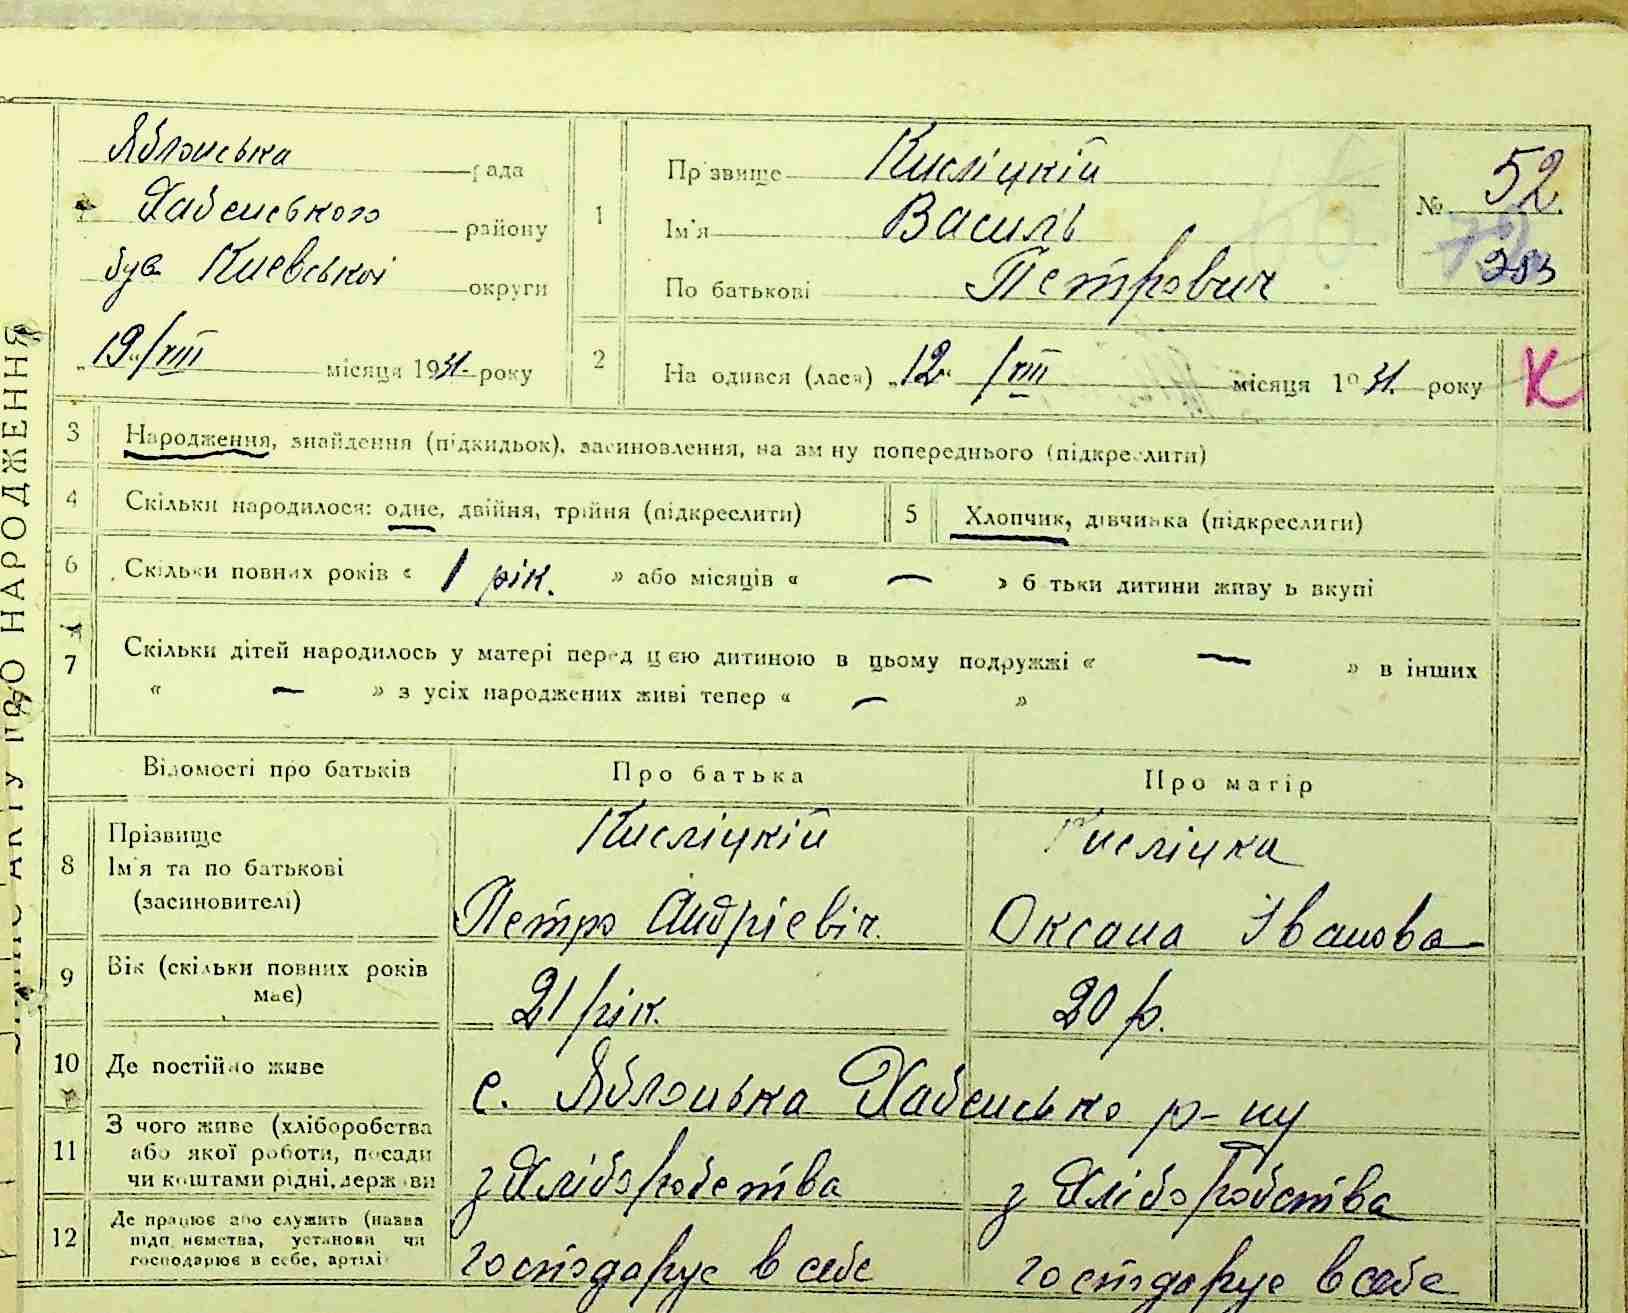 ЗАПИС АКТУ ПРО НАРОДЖЕННЯ
Яблонська рада
Хабенського району
був. Киевської округи
„19“/VIII місяця 1931 року
1
Прізвище Кисліцкій
Ім'я Василь
По батькові Петрович
№ 52
2
На одився (лася) „12“ /VIII місяця 1931 року
К
3 Народження, знайдення (підкидьок), засиновлення, на зміну попереднього (підкреслити)
4 Скільки народилося: одне, двійня, трійня (підкреслити)
5 Хлопчик, дівчинка (підкреслити)
6 Скільки повних років « 1 рік. » або місяців « — » батьки дитини живуть вкупі
7 Скільки дітей народилось у матері перед цією дитиною в цьому подружжі « — » в інших
« — » з усіх народжених живі тепер « — »
Відомості про батьків Про батька Про матір
8 Прізвище
Ім'я та по батькові
(засиновителі)
Кисліцкій
Петро Андріевіч.
Кисліцка
Оксана Іванова
9 Вік (скільки повних років
має)
21 рік.
20 р.
10 Де постійно живе
с. Яблонька Хабенсько р-ну
11 З чого живе (хліборобства
або якої роботи, посади
чи коштами рідні, держави
з Хліборобства
з Хліборобства
12 Де працює або служить (назва
підприємства, установи чи
господарює в себе, артілі
господарує в себе
господарує в себе